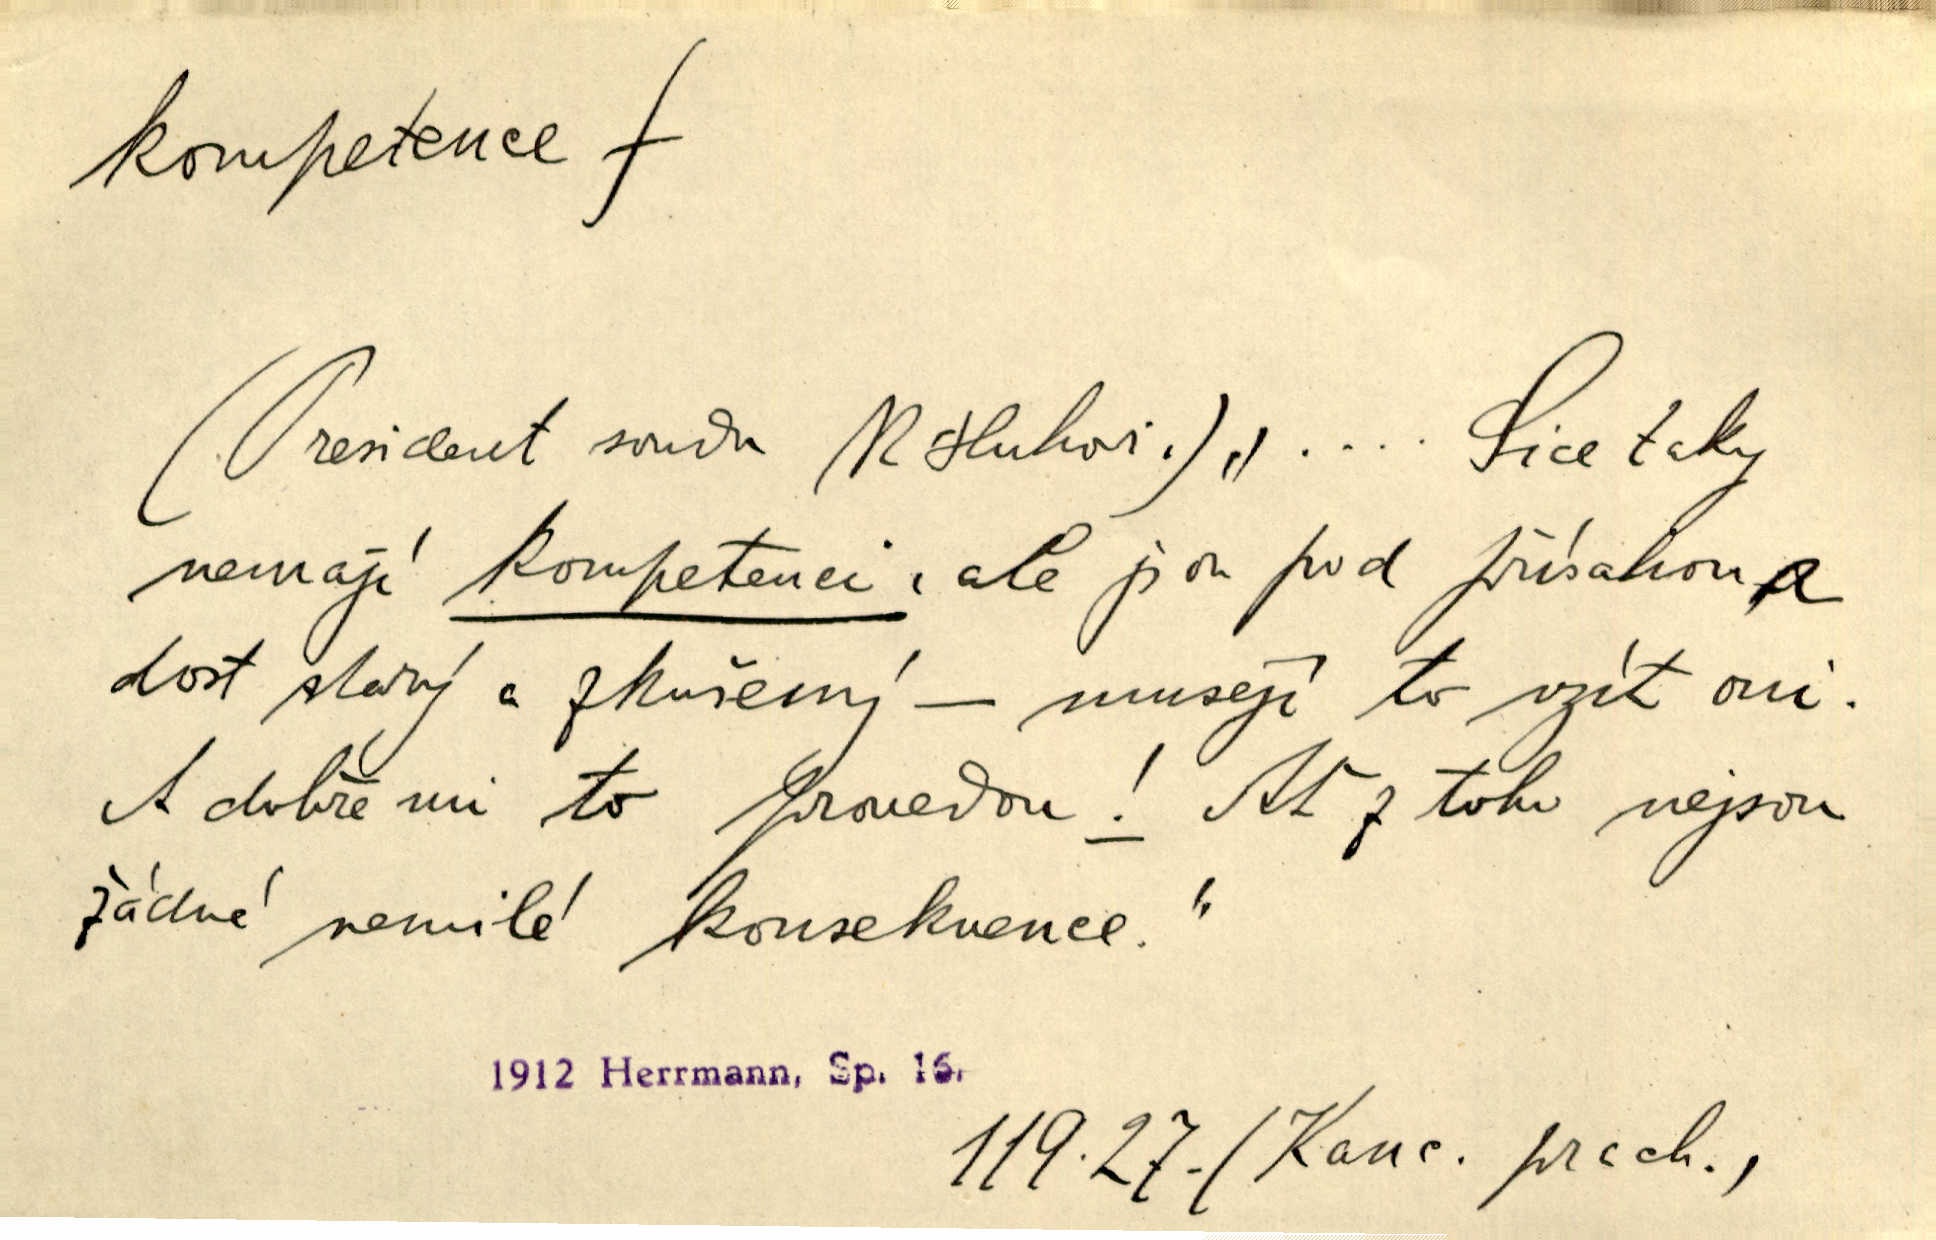 kompetence f
(President soudu Hluhovi.) „.... Sice taky
nemají kompetenci, ale jsou pod přísahou a
dost starý a zkušený — musejí to vzít oni.
A dobře mi to provedou! Ať z toho nejsou
žádné nemilé konsekvence."
1912 Herrmann, Sp. 16.
119.27.(Kanc. prach.,